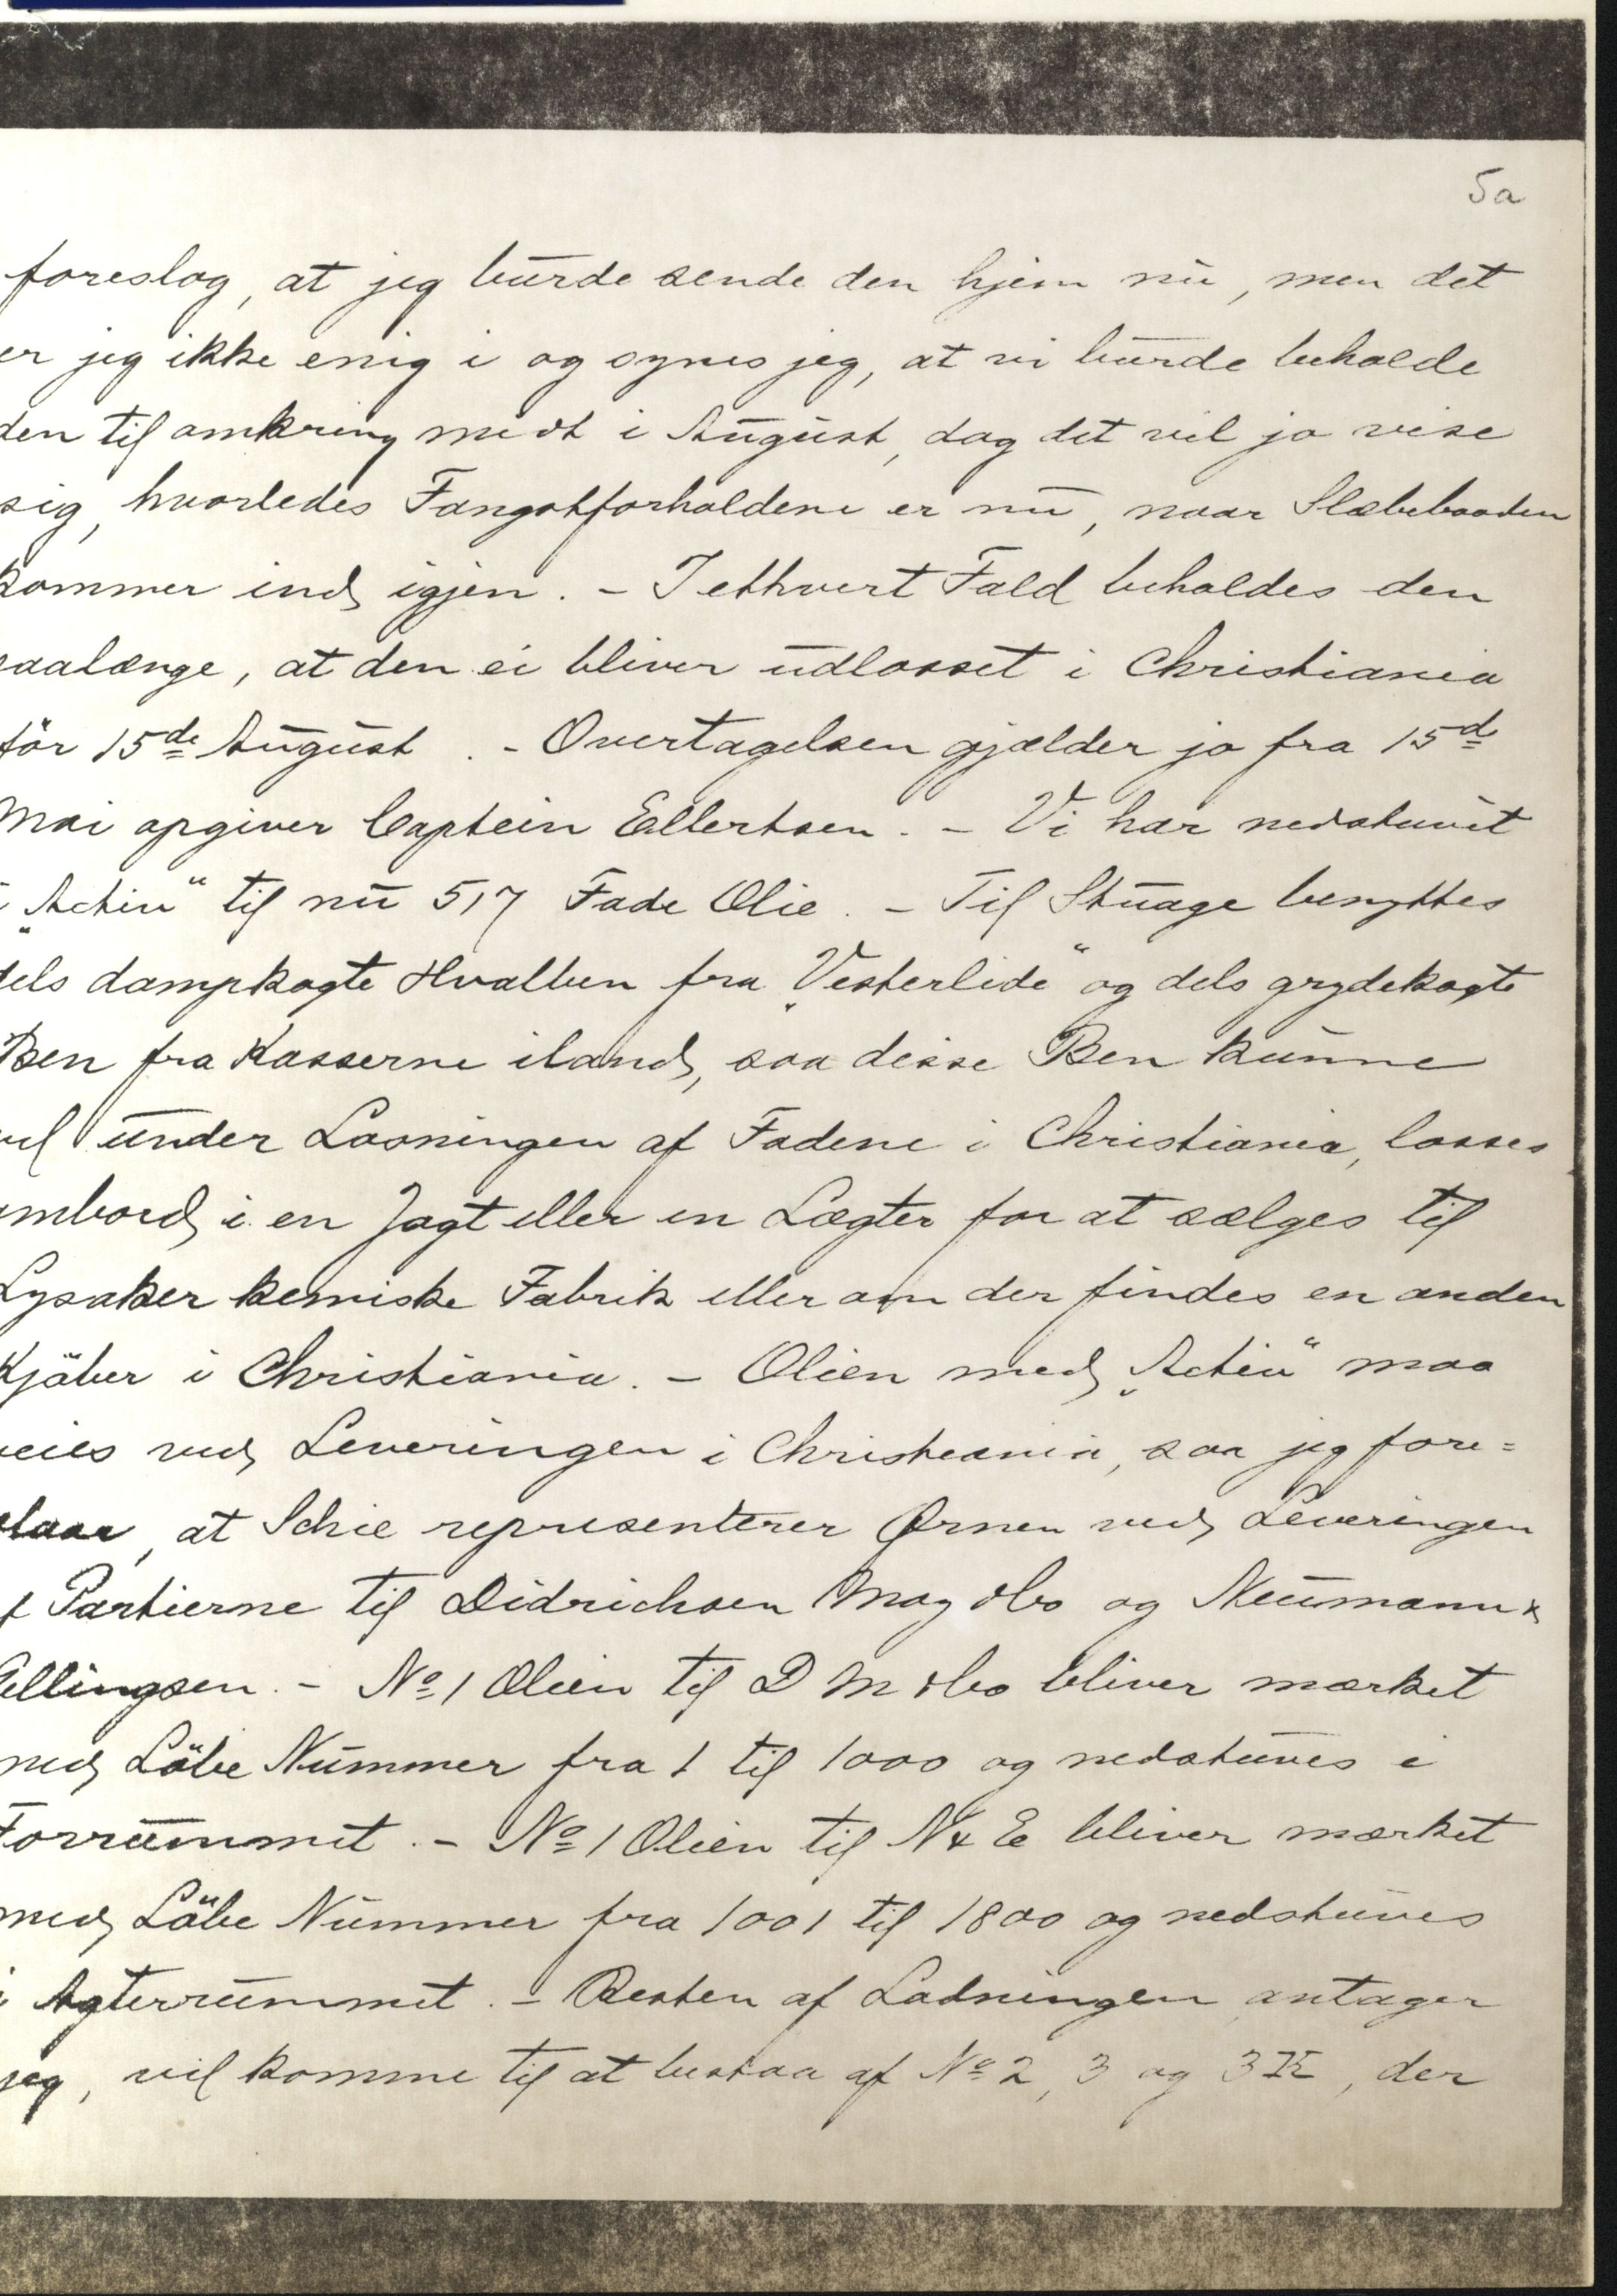 5a
foreslog, at jeg burde sende den hjem nu, men det
er jeg ikke enig i og synes jeg, at vi burde beholde
den til omkring midt i August, dog det vil jo vise
sig, hvorledes Fangstforholdene er nu, naar Slæbebaaden
kommer ind igjen. - I ethvert Fald beholdes den
saalænge, at den ei bliver udlosset i Christiania
för 15de August. - Overtagelsen gjælder jo fra 15de
Mai opgiver Captein Ellertsen. - Vi har nedstuvet
i „Activ“ til nu 517 Fade Olie. - Til Stuage benyttes
dels dampkogte Hvalben fra „Vesterlide“ og dels grydekogte
Ben fra Kasserne iland, saa disse Ben kunne
vel under Losningen af Fadene i Christiania, losses
ombord i en Jagt eller en Lægter for at sælges til
Lysaker kemiske Fabrik eller om der findes en anden
Kjöber i Christiania. - Olien med „Activ“ maa
veies ved Leveringen i Christiania, saa jeg fore=
slaar, at Schie representerer Ørnen ved Leveringen
af Partierne til Didrichsen Mag & Co og Neumann &
Ellingsen. - No 1 Olien til D M & Co bliver mærket
med Löbe Nummer fra 1 til 1000 og nedstuves i
Forrummet. - No 1 Olien til N & E bliver mærket
med Löbe Nummer fra 1001 til 1800 og nedstuves
i Agterrummet. - Resten af Ladningen antager
jeg, vil komme til at bestaa af No 2, 3 og 3 K, der